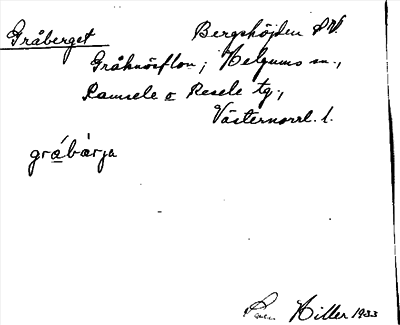 Gråberget Bergshöjden SV.
Gråknösflon, Helgums sn.,
Ramsele o Resele tg.,
Västernorrl. l.
gråbärja
Hiller 1933